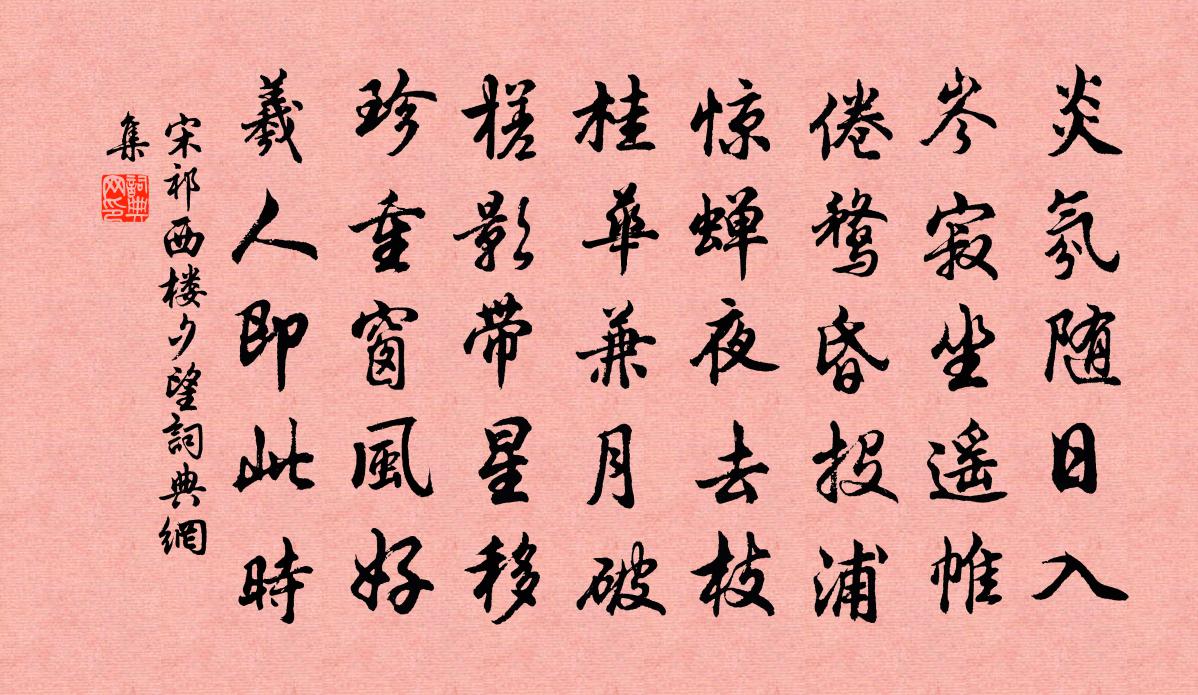 炎氛随日入
岑寂坐遥帷
倦鹜昏投浦
惊蝉夜去枝
桂华兼月破
槎影带星移
珍重窗風好
羲人即此時
宋祁西楼夕望詞典網
集
詞典
网印